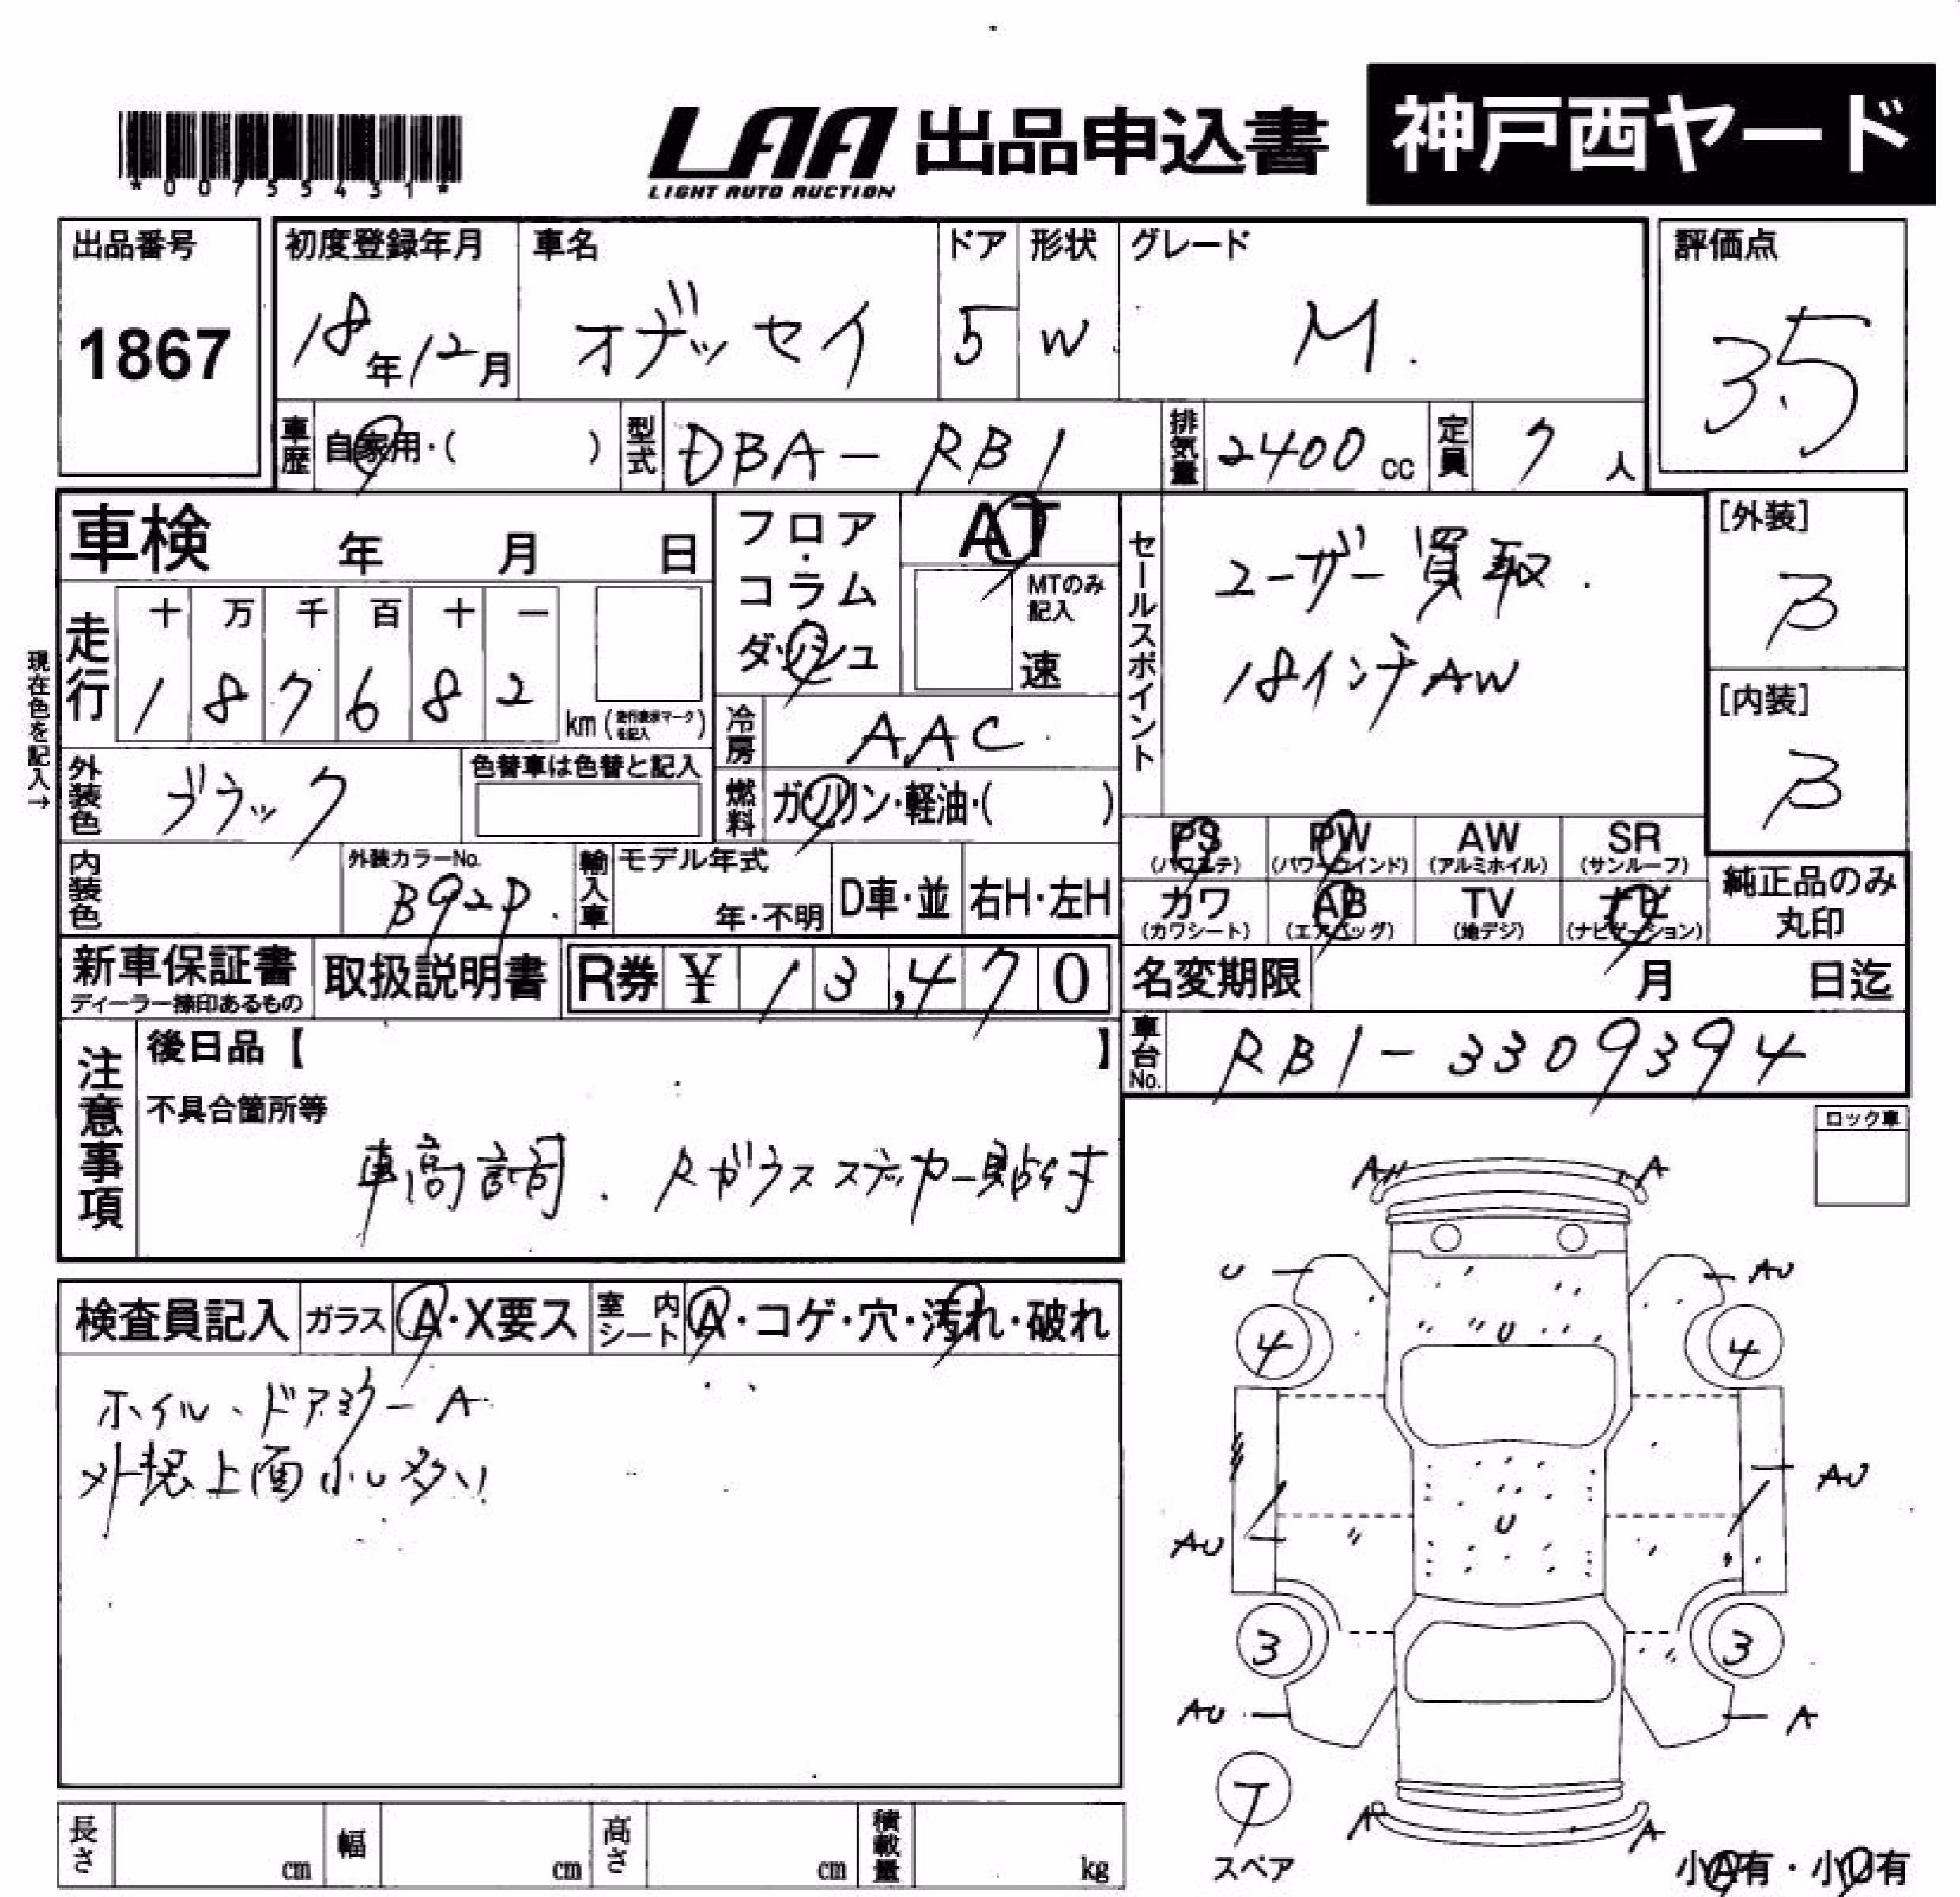 *00755431*
LAA LIGHT AUTO AUCTION 出品申込書 神戸西ヤード
出品番号 1867
初度登録年月 18年12月
車名 オデッセイ
ドア 5
形状 W
グレード M
評価点 3.5
車歴 自家用・( )
型式 DBA-RB1
排気量 2400cc
定員 7人
車検 年 月 日
フロア・コラム ダッシュ
AT
MTのみ記入 速
セールスポイント
ユーザー買取
18インチAW
[外装] B
[内装] B
現在色を記入→
走行 十 万 千 百 十 一
1 8 7 6 8 2 km
冷房 AAC
燃料 ガソリン・軽油・( )
外装色 ブラック
色替車は色替と記入
内装色
外装カラーNo. B92P
輸入車 モデル年式 年・不明
D車・並 右H・左H
PS (パワステ) PW (パワーウインド) AW (アルミホイル) SR (サンルーフ)
カワ (カワシート) AB (エアバッグ) TV (地デジ) ナビ (ナビゲーション)
純正品のみ丸印
新車保証書 ディーラー捺印あるもの
取扱説明書
R券 ¥ 13,470
名変期限 月 日迄
車台No. RB1-3309394
注意事項
後日品【 】
不具合箇所等
車高調. Rガラスステッカー貼付
ロック車
検査員記入 ガラス A・X要ス 室内シート A・コゲ・穴・汚れ・破れ
ホイル、ドアミラーA
外装上面小U多い
A A
U AU
4 U 4
AU
U
AU
3 3
AU A
T
スペア
A A
小A有・小U有
長さ cm 幅 cm 高さ cm 積載量 kg